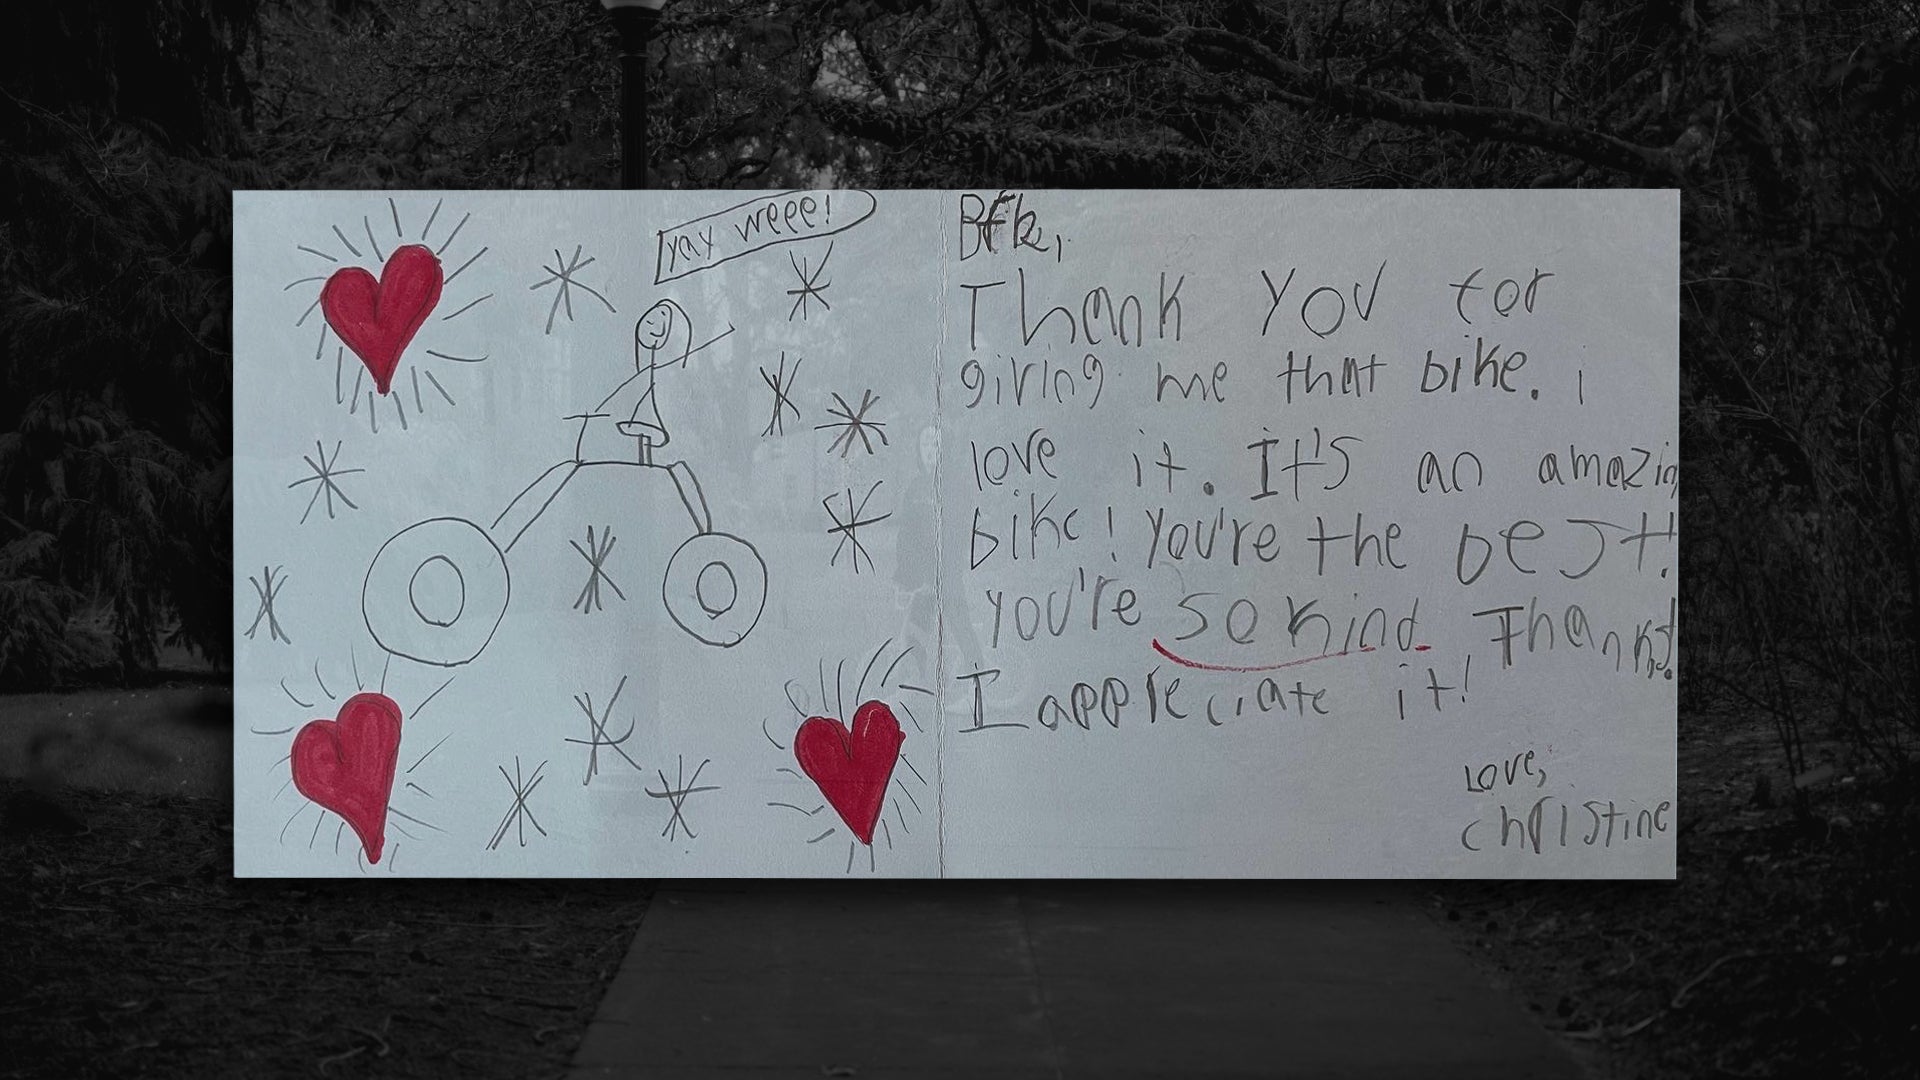 yay weee!
Bfk,
Thank you for
giving me that bike. i
love it. It's an amazin
bike! You're the best!
you're so kind. Thanks!
I appreciate it!
Love,
christine